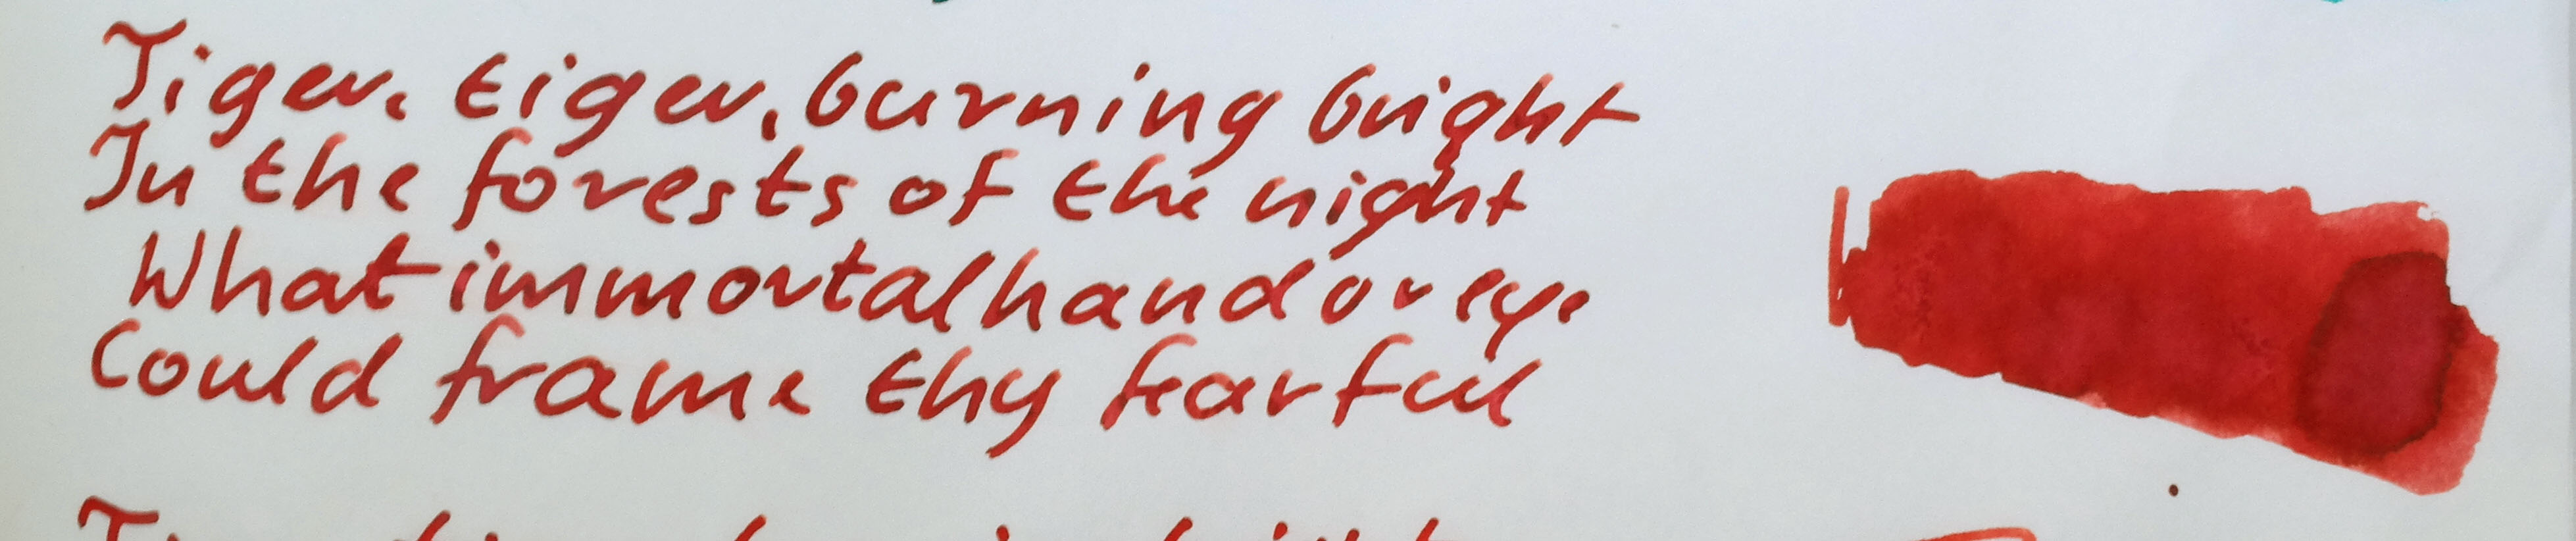 Tiger, tiger, burning bright
In the forests of the night
What immortal hand or eye
Could frame thy fearful